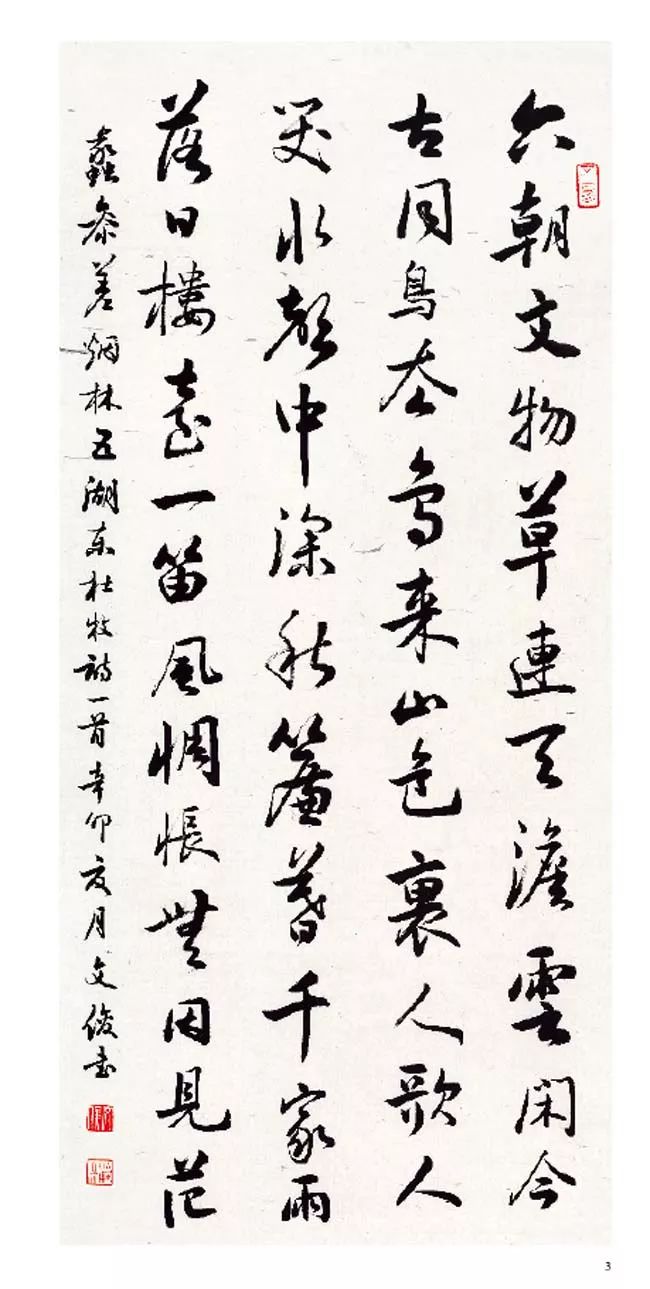 六朝文物草連天澹雲閑今
古同鳥去鳥来山色裏人歌人
哭水聲中深秋簾暮千家雨
落日樓臺一笛風惆悵無因見范
蠡參差烟林五湖東杜牧詩一首辛卯夏月文俊書
3